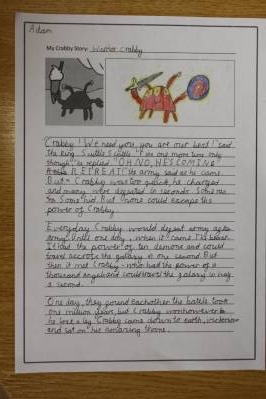 Adam
My Crabby Story: Warrior Crabby
"Crabby! We need you, you are our best!" said
the king. Scuttle Scuttle "I've one more time only
though" he replied. "OH NO, HE'S COMING
RETREAT!" the army said as he came.
But Crabby was too quick, he charged
and many were defeated in seconds. Some ran
Some hid. But none could escape the
power of Crabby.
Everyday Crabby would defeat army after
army. Until one day, when it came. The beast.
It had the power of ten demons and could
travel accross the galaxy in one second. But
then it met Crabby - who had the power of a
thousand angels and could travel the galaxy in half
a second.
One day, they found eachother the battle took
one million years, but Crabby won however
he lost a leg. Crabby came down to earth, victorious
and sat on his amazing throne.